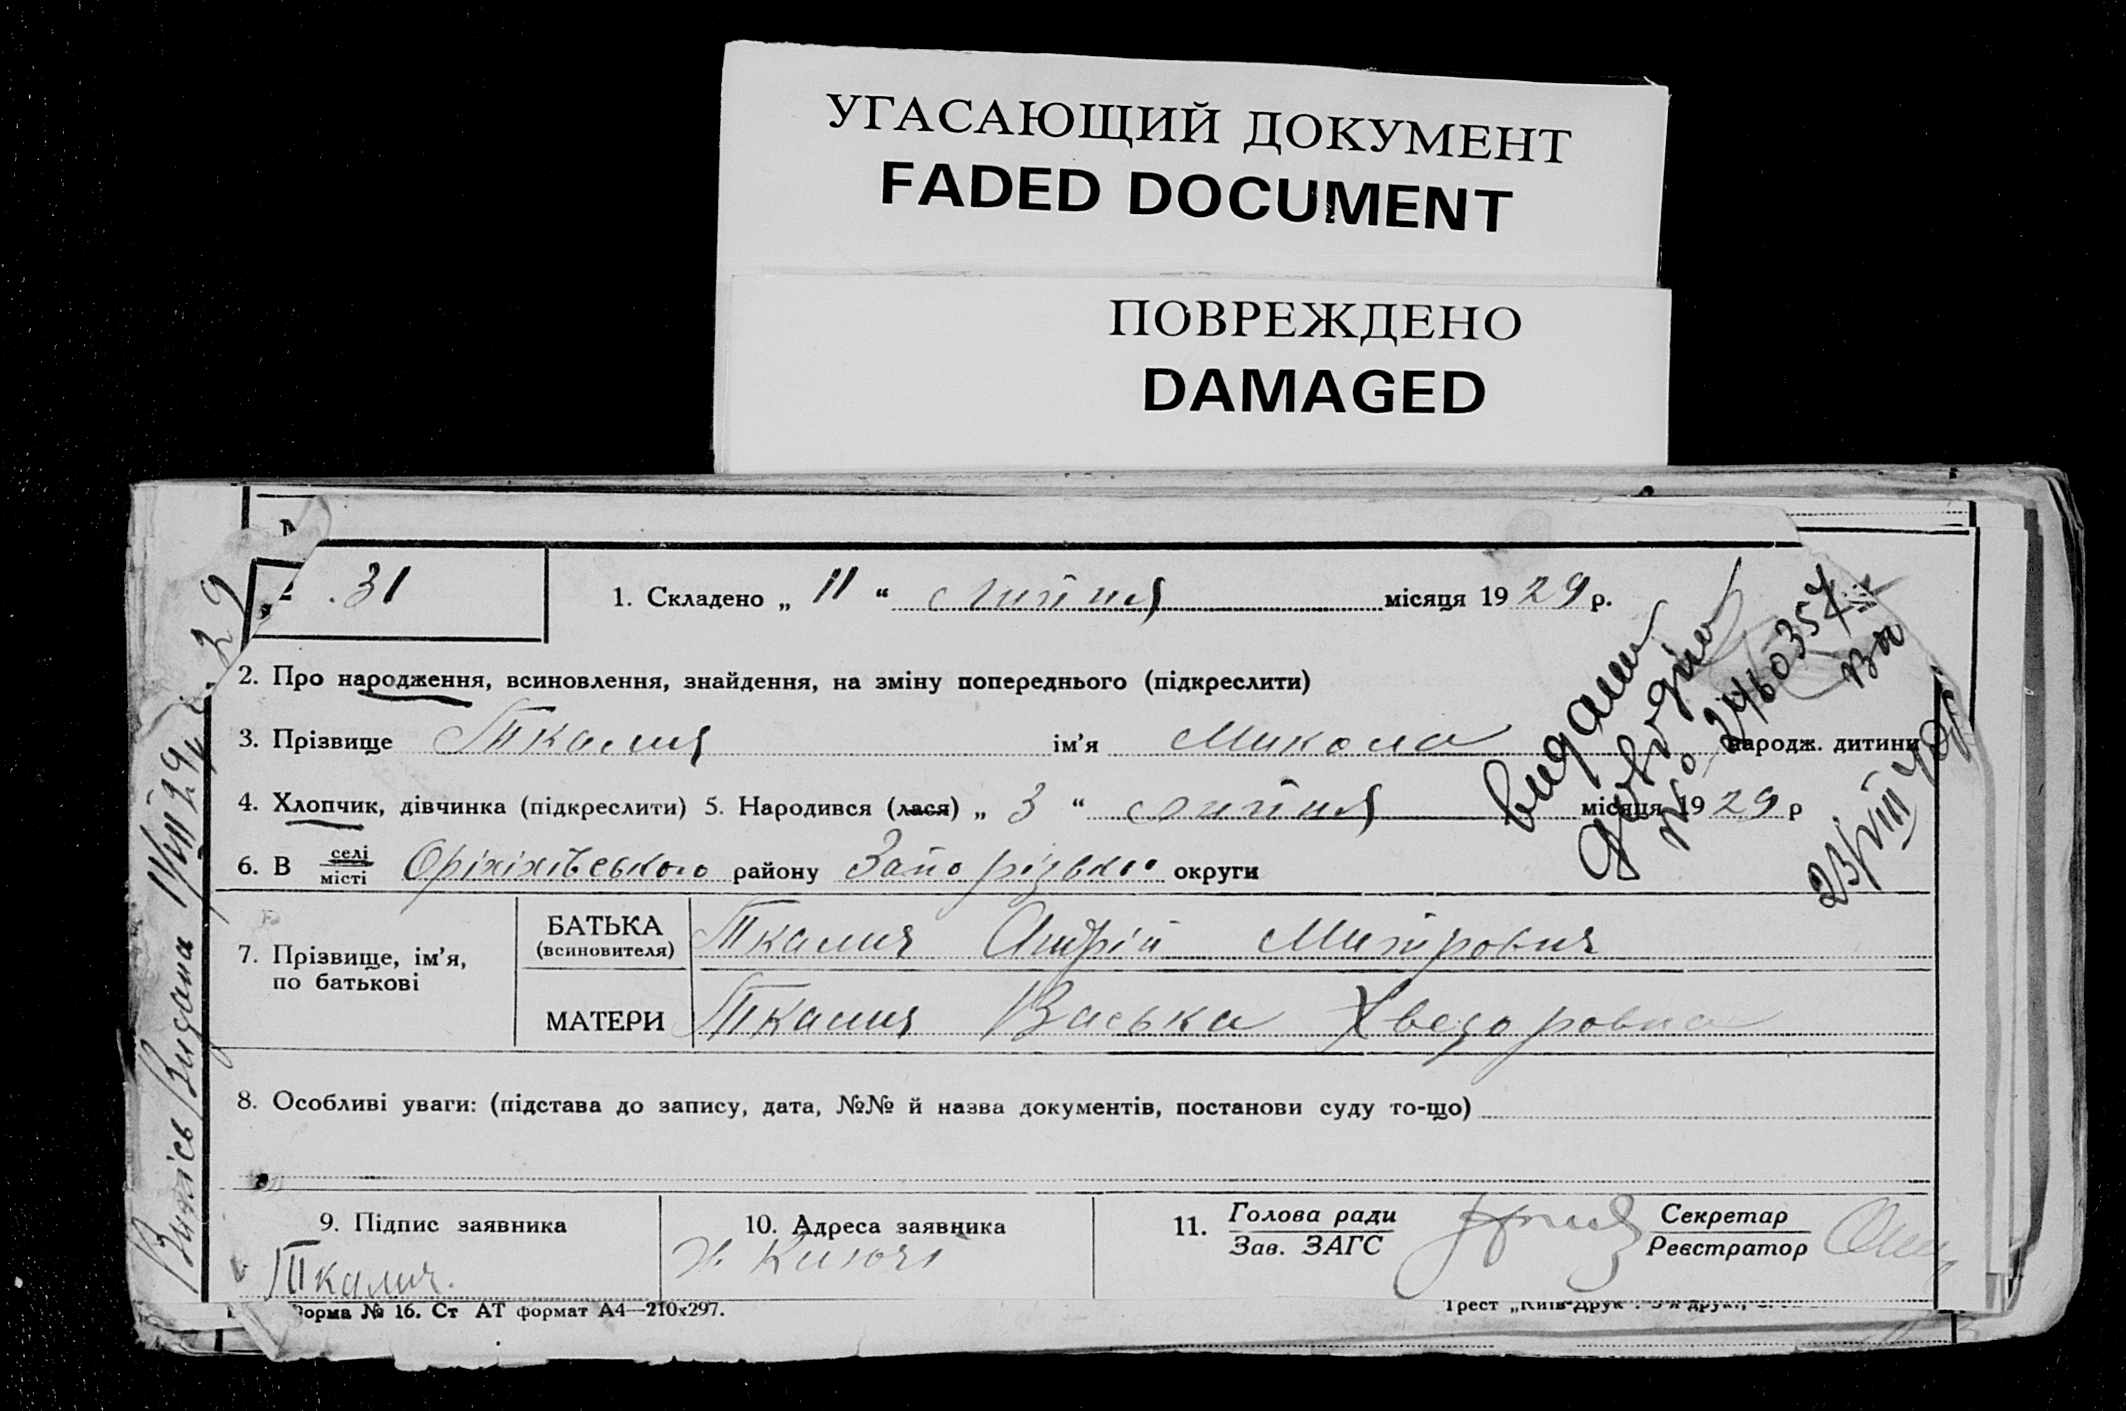 УГАСАЮЩИЙ ДОКУМЕНТ
FADED DOCUMENT
ПОВРЕЖДЕНО
DAMAGED
31
1. Складено „ 11 “ липня місяця 1929 р.
2. Про народження, всиновлення, знайдення, на зміну попереднього (підкреслити)
3. Прізвище Ткалич ім'я Микола народж. дитини
4. Хлопчик, дівчинка (підкреслити) 5. Народився (лася) „ 3 “ липня місяця 1929 р
6. В селі місті Оріхівського району Запорізько округи
7. Прізвище, ім'я, по батькові
БАТЬКА (всиновителя) Ткалич Андрій Митрович
МАТЕРИ Ткалич Васька Хведоровна
8. Особливі уваги: (підстава до запису, дата, №№ й назва документів, постанови суду то-що)
9. Підпис заявника
Ткалич.
10. Адреса заявника
11. Голова ради
Зав. ЗАГС
Секретар
Реєстратор
Форма № 16. Ст АТ формат А4—210х297.
Трест „Київ-Друк“
Випись Видана
29
видани
довідки
№ 2460357
23/VIII